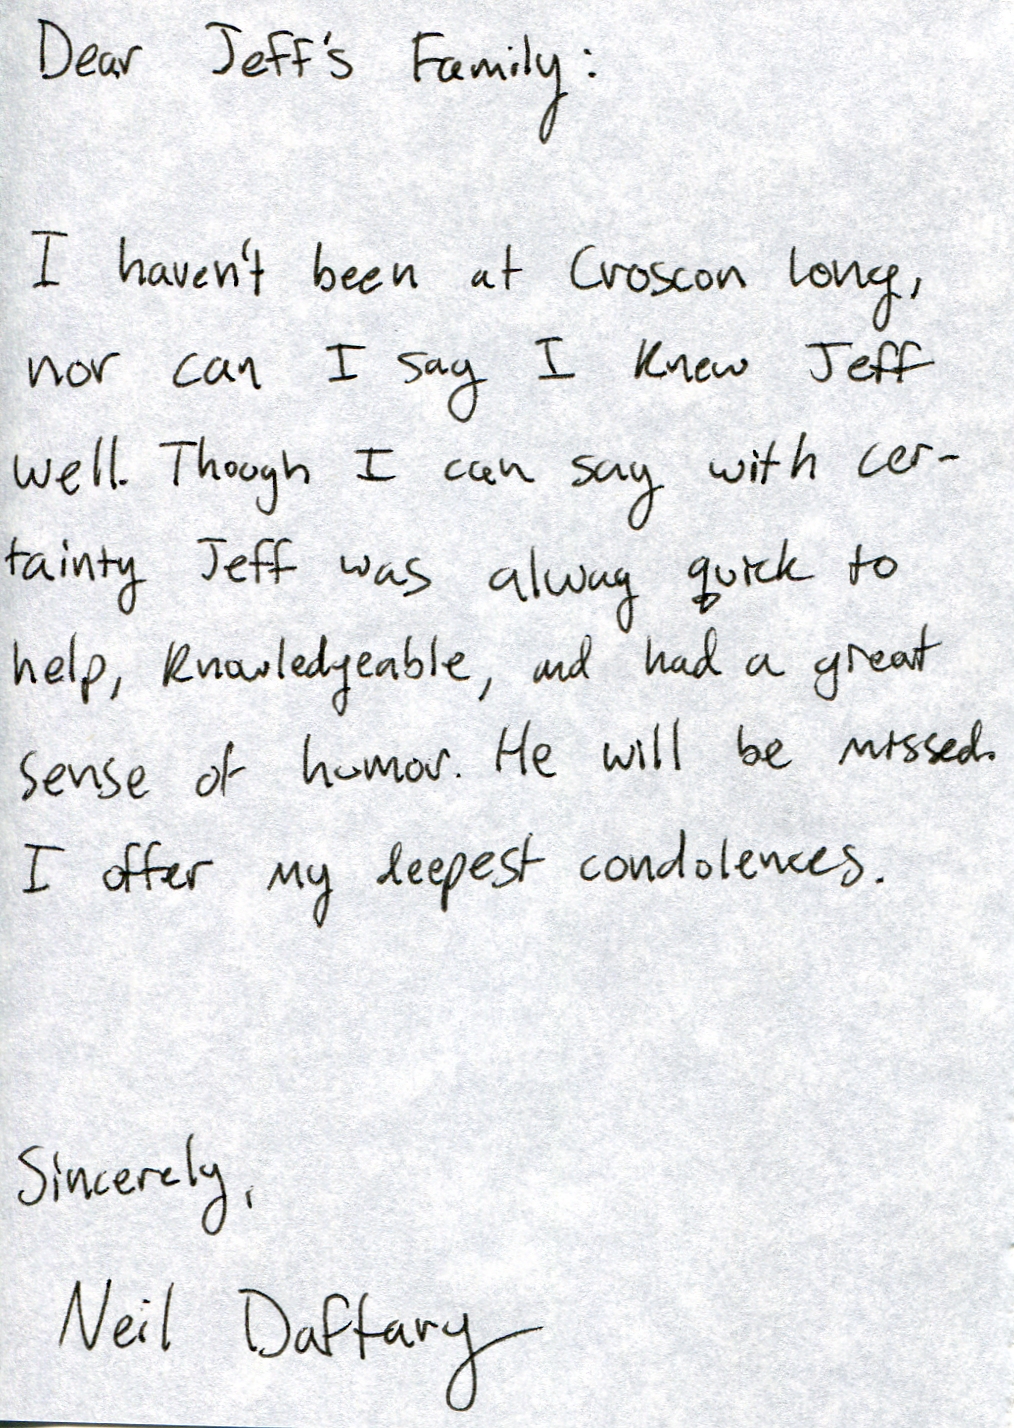 Dear Jeff's Family:
I haven't been at Croscon long,
nor can I say I knew Jeff
well. Though I can say with cer-
tainty Jeff was alway quick to
help, knowledgeable, and had a great
sense of humor. He will be missed.
I offer my deepest condolences.
Sincerely,
Neil Daftary